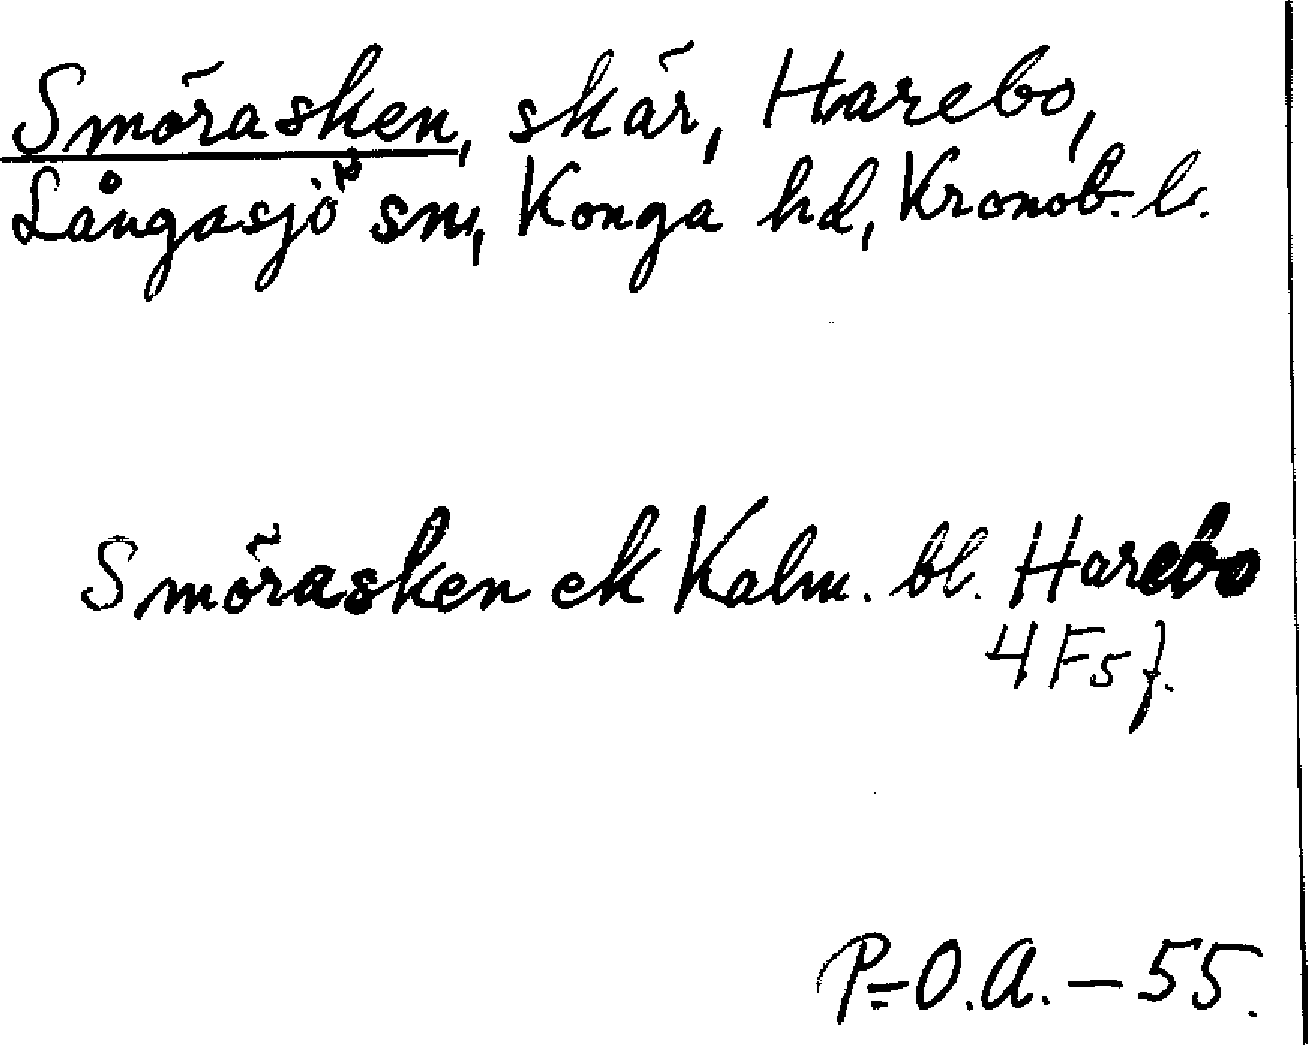 Smörasken, skär, Harebo,
Långasjö sn, Konga hd, Kronob. l.
Smörasken ek Kalm. bl. Harebo
4 F 5 f.
P=O.A. – 55.